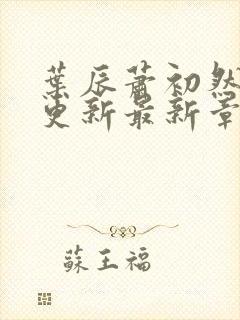 葉辰蕭初然
更新最新章
蘇王福